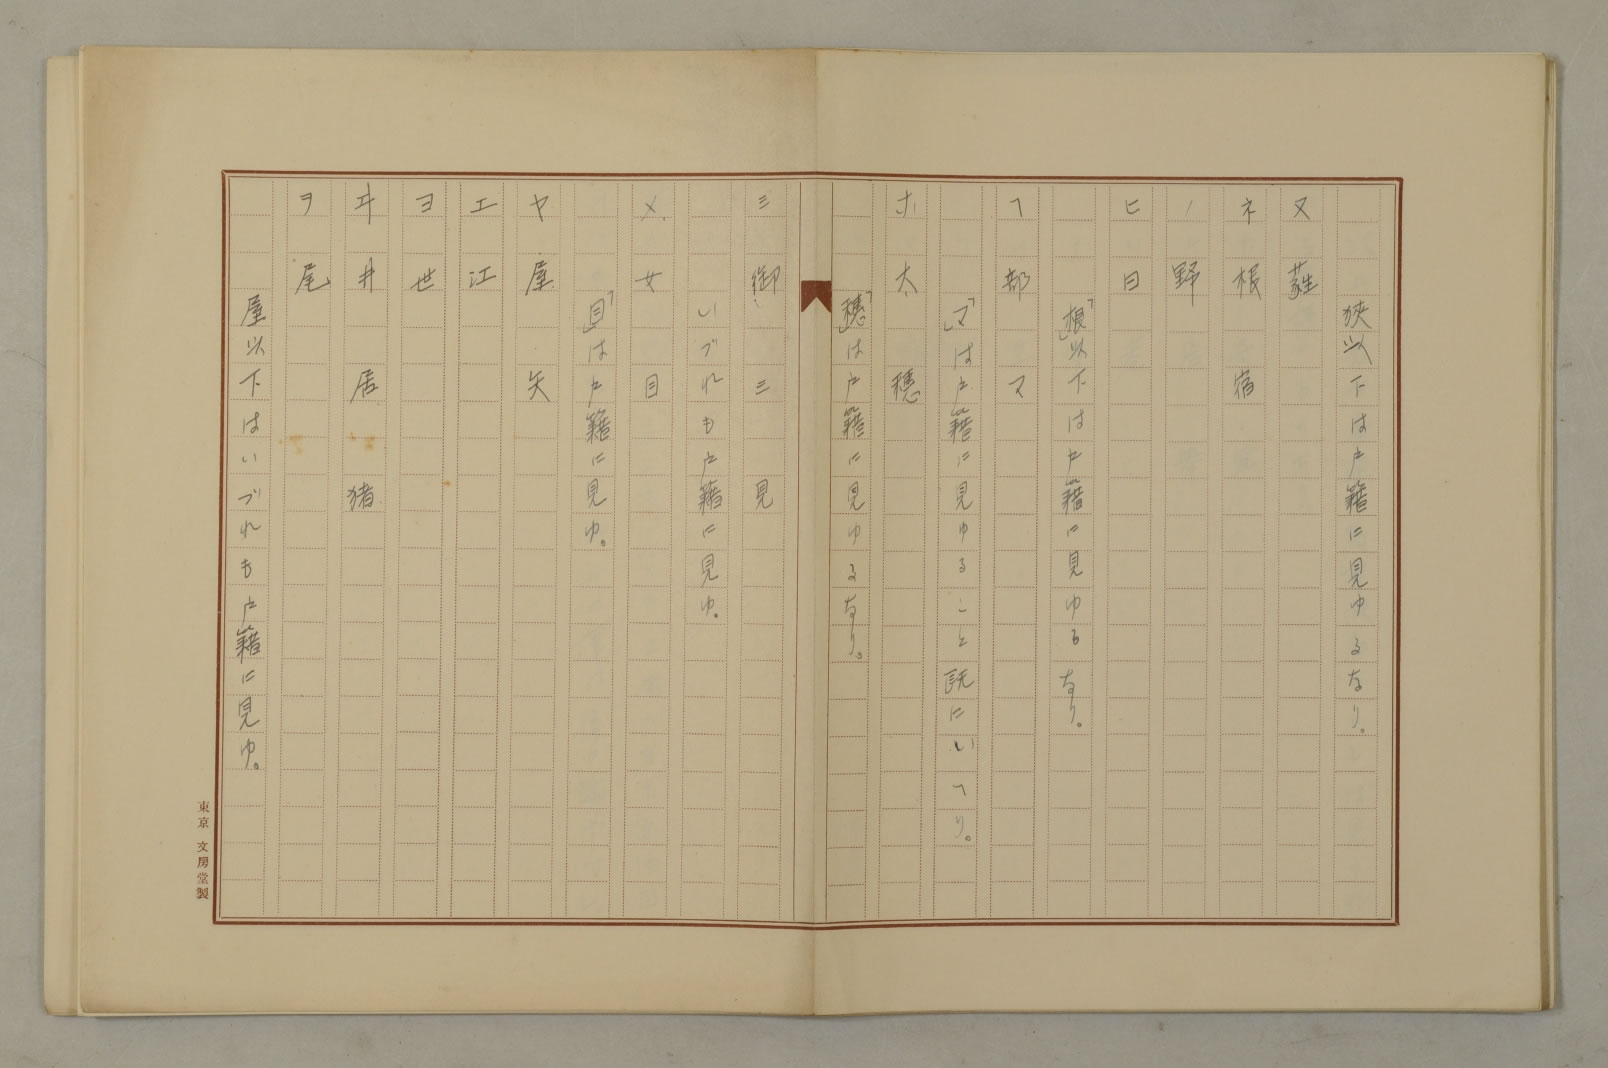 狹以下は戸籍に見ゆるなり。
ヌ 蕤
ネ 根 宿
ノ 野
ヒ 日
「根」以下は戸籍に見ゆるなり。
ヘ 部 マ
「マ」は戸籍に見ゆること既にいへり。
ホ 太 穂
「穂」は戸籍に見ゆるなり。
ミ 御 三 見
いづれも戸籍に見ゆ。
メ 女 目
「目」は戸籍に見ゆ。
ヤ 屋 矢
エ 江
ヨ 世
ヰ 井 居 猪
ヲ 尾
屋以下はいづれも戸籍に見ゆ。
東京 文房堂製